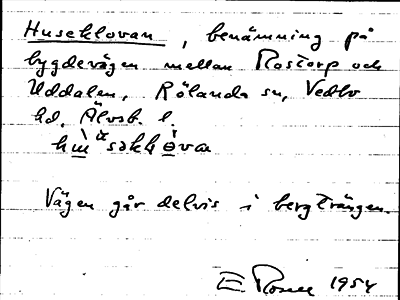 Huseklovan, benämning på
bygdevägen mellan Rostorp och
Uddalen, Rölanda sn, Vedbo
hd, Älvsb. l.
Vägen går delvis i bergträngen.
E 1954